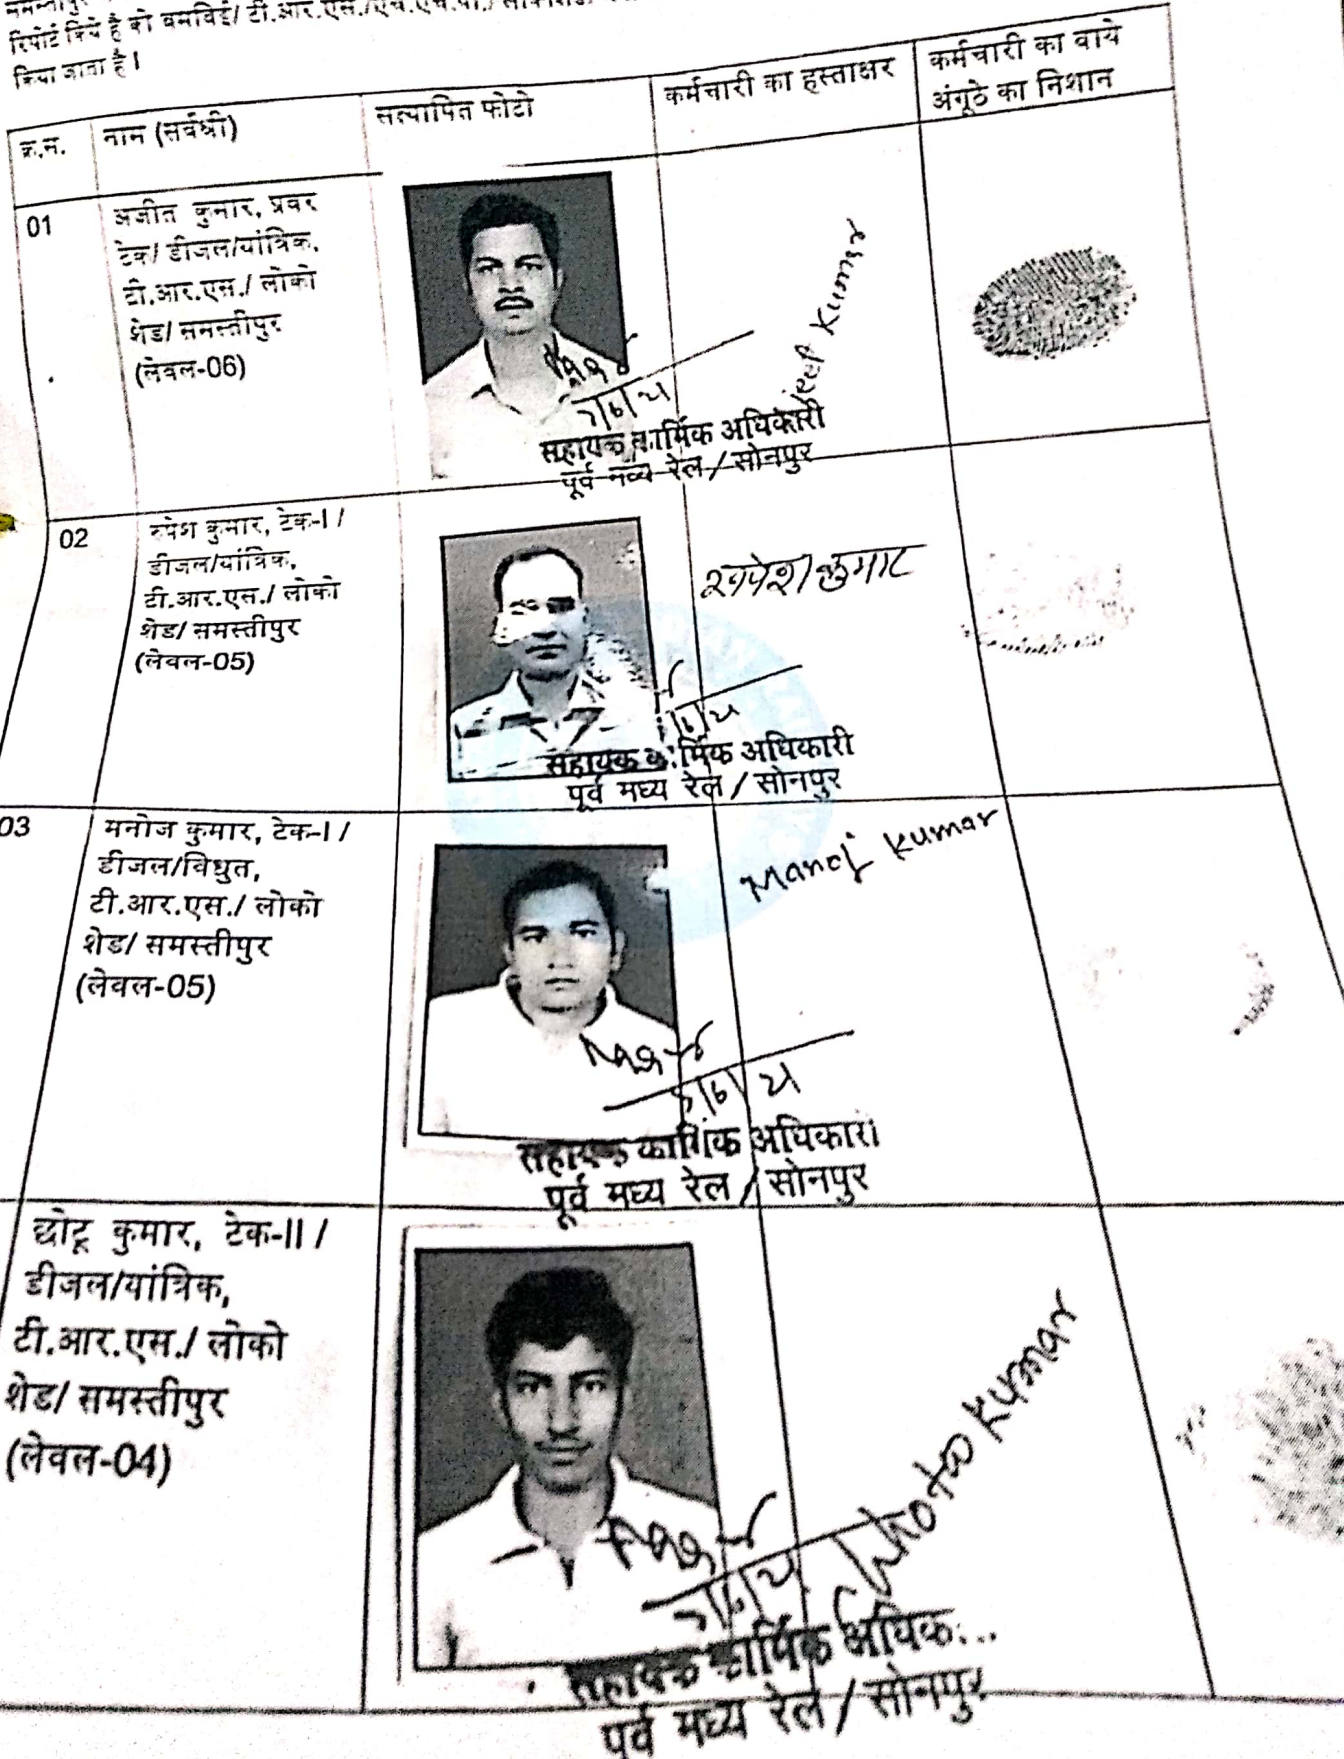 रिपोर्ट किये है को
किया जाता है।
क्र.स.
नाम (सर्वश्री)
सत्यापित फोटो
कर्मचारी का हस्ताक्षर
कर्मचारी का वाये
अंगूठे का निशान
01
अजीत कुमार, प्रवर
टेक/ डीजल/यांत्रिक,
टी.आर.एस./ लोको
शेड/ समस्तीपुर
(लेवल-06)
सहायक कार्मिक अधिकारी
पूर्व मध्य रेल / सोनपुर
jeet Kumar
02
रुपेश कुमार, टेक-I /
डीजल/यांत्रिक,
टी.आर.एस./ लोको
शेड/ समस्तीपुर
(लेवल-05)
सहायक कार्मिक अधिकारी
पूर्व मध्य रेल / सोनपुर
रूपेश कुमार
03
मनोज कुमार, टेक-I /
डीजल/विधुत,
टी.आर.एस./ लोको
शेड/ समस्तीपुर
(लेवल-05)
सहायक कार्मिक अधिकारी
पूर्व मध्य रेल / सोनपुर
Manoj Kumar
छोटू कुमार, टेक-II /
डीजल/यांत्रिक,
टी.आर.एस./ लोको
शेड/ समस्तीपुर
(लेवल-04)
सहायक कार्मिक अधिक
पूर्व मध्य रेल / सोनपुर
Chotoo Kumar